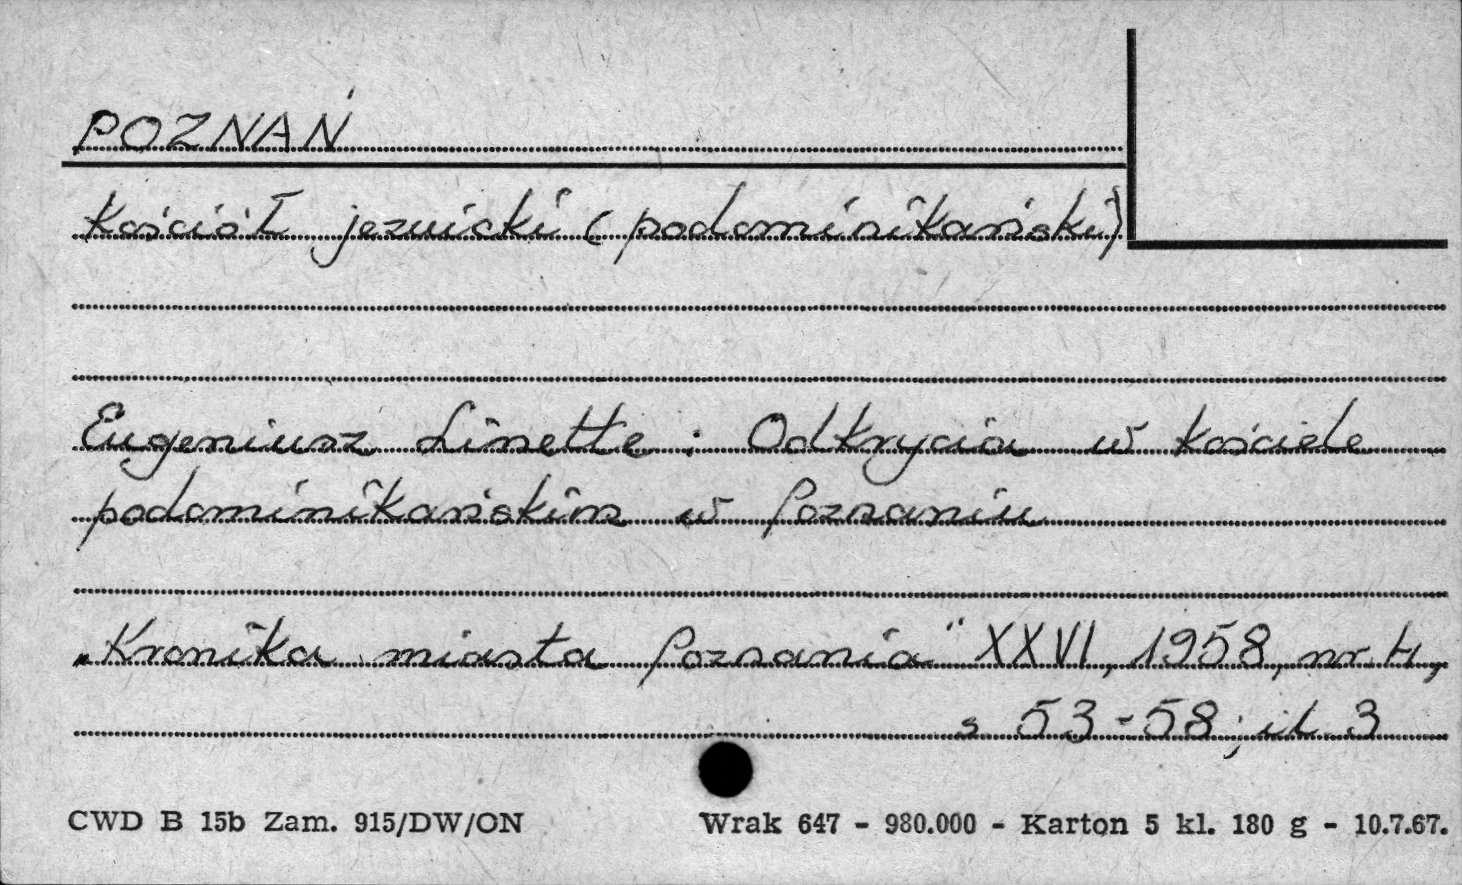 POZNAŃ
Kościół jezuicki (podominikański)
Eugeniusz Linette : Odkrycia w kościele
podominikańskim w Poznaniu
„Kronika miasta Poznania" XXVI, 1958, nr 4,
s 53-58; il 3
CWD B 15b Zam. 915/DW/ON Wrak 647 - 980.000 - Karton 5 kl. 180 g - 10.7.67.